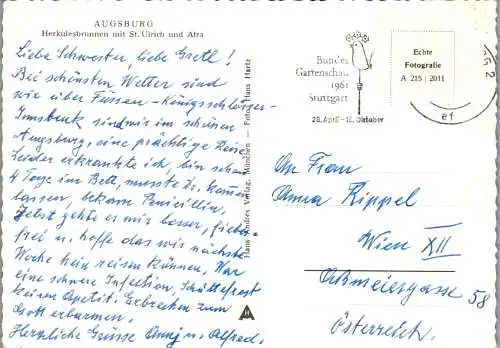 AUGSBURG
Herkulesbrunnen mit St. Ulrich und Afra
Liebe Schwester, liebe Gretl!
Bei schönsten Wetter sind
wir über Füssen - Königsschlösser -
Innsbruck sind wir im schönen
Augsburg, eine prächtige Reise
Leider erkrankte ich, bin schon
4 Tage im Bett, musste Dr. kommen
lassen, bekam Penicillin,
Jetzt gehts mir besser, fieber
frei u. hoffe das wir nächste
Woche heim reisen können. War
eine schwere Infection, Schüttelfrost
keinen Apetit Erbrechen zum
Gott erbarmen.
Herzliche Grüsse Annj u. Alfred.
Hans Andres Verlag, München - Foto Hans Hartz
Bundes
Gartenschau
1961
Stuttgart
28. April - 15. Oktober
Echte
Fotografie
A 215 | 2011
ef
An Frau
Anna Rippel
Wien XII
58
Österreich.